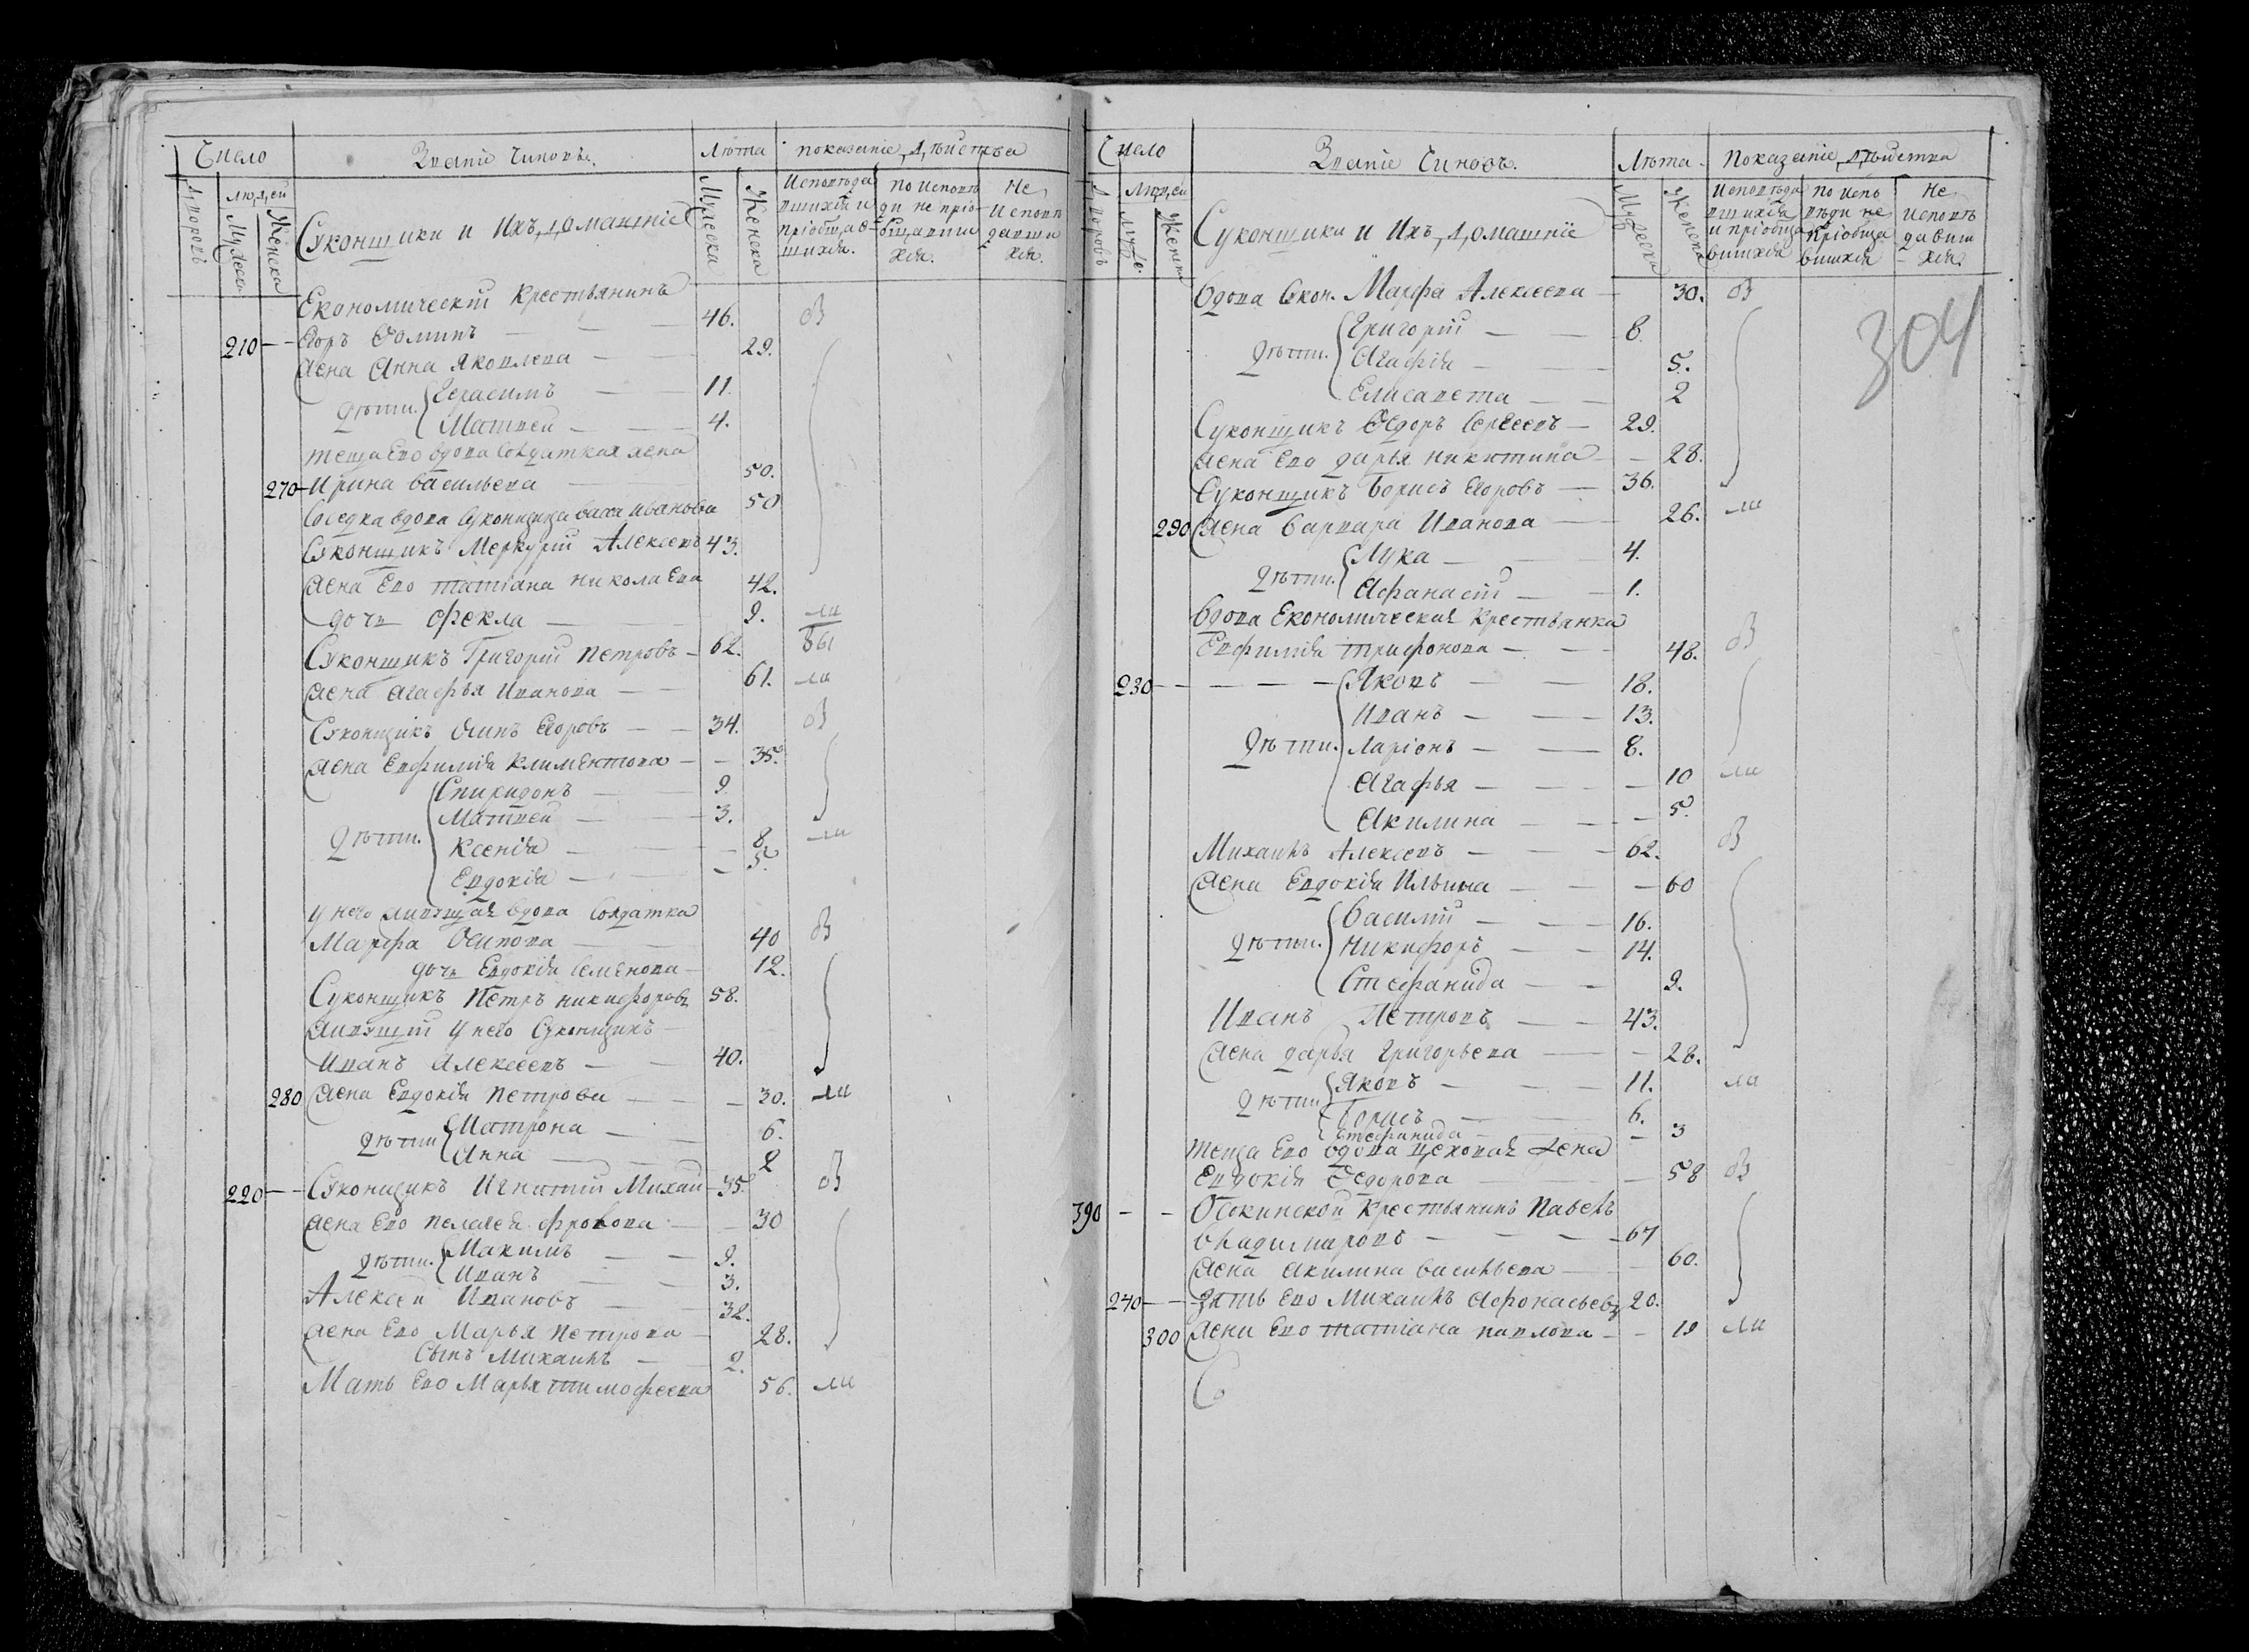 Число
Званіе Чиновъ.
Лѣта
показаніе дѣйства
Дворовъ
людей
Мужеска
Женска
Суконщики и Ихъ домашніе
Мужеска
Женска
Исповѣда
вшихся и
пріобщав
шихся.
по исповѣ
ди не пріо-
бщавши
хся.
Не
Исповѣ
давши
хся.
Економическій крестьянинъ
210 — Егоръ Фоминъ — 46. В
жена Анна Яковлева — 29.
дѣти. Герасимъ — 11.
Матвей — 4.
теща Ево вдова Солдатская жена
270 Ирина васильева 50.
Соседка вдова Суконщица васса иванова 50
Суконщикъ Меркурій Алексевъ 43.
жена Ево татіана николаева 42.
дочь Фекла — 9. ли
Суконщикъ Григорій петровъ — 62. вы
жена агафья Иванова — 61. ли
Суконщикъ Осипъ Егоровъ — 34. В
жена Евфимія климентова — 35.
дѣти. Спиридонъ — 9
Матвей — 3.
Ксенія — 8. ли
Евдокія — 5.
у него живущая вдова Солдатка
Марфа Осипова — 40 В
дочь Евдокія Семенова — 12.
Суконщикъ Петръ никифоровъ 58.
живущій у него Суконщикъ —
Иванъ Алексеевъ — 40.
280 жена Евдокія петрова — 30. ли
дѣти Матрона — 6.
Анна — 2
220 — Суконщикъ Игнатій Михаи 35. В
жена Ево пелагея фролова — 30
дѣти. Макимъ — 9.
Иванъ — 3.
Алексей Ивановъ — 32.
жена Ево Марья петрова — 28.
Сынъ Михаилъ — 2.
Мать Ево Марья тимофеева 56. ли
Число
Званіе Чиновъ.
Лѣта.
Показаніе дѣйства
Дворовъ
Людей
Муже.
Женск
Суконщики и Ихъ домашніе
Мужеска
Женска
Исповѣда
вшихся
и пріобща
вшихся
по испо
вѣди не
пріобща
вшихся
Не
исповѣ
давши
хся.
304
Вдова Екон. Марфа Алексеева — 30. В
дѣти. Григорій — 8.
Агафія — 5.
Елисавета — 2
Суконщикъ Федоръ Сергеевъ — 29.
жена Ево дарья никитина — 28.
Суконщикъ Борисъ Егоровъ — 36.
290 жена варвара Иванова — 26. ли
дѣти. Лука — 4.
Афанасій — 1.
Вдова Економическая крестьянка
Евфимія трифонова — 48. В
230 — Яковъ — 18.
Иванъ — 13.
дѣти. Ларіонъ — 8.
Агафья — 10 ли
Акилина — 5.
Михаилъ Алексевъ — 62. В
жена Евдокія Ильина — 60
дѣти. Василій — 16.
Никифоръ — 14.
Стефанида — 9.
Иванъ Петровъ — 43.
жена дарья григорьева — 28.
дѣти Яковъ — 11. ли
Борисъ — 6.
Стефанида — 3
теща Ево вдова цеховая жена
Евдокія Федорова — 58 В
390 — Осокинской крестьянинъ Павелъ
владимировъ — 67
жена акилина васильева — 60.
240 — зять Ево Михаилъ Афонасьевъ 20.
300 жена Ево татіана павлова — 19 ли